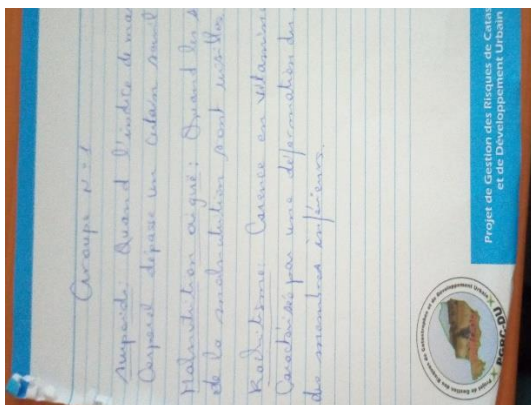 Groupe N° 1
Surpoids: Quand l'indice de mas
Corporel dépasse un certain seuil
Malnutrition aiguë: Quand les s
de la malnutrition sont visibles
Rachitisme: Carence en vitamine
Caractérisée par une déformation du
des membres inférieurs.
Projet de Gestion des Risques de Catas
et de Développement Urbain
Projet de Gestion des Risques de Catastrophes et de Développement Urbain
PGRC-DU